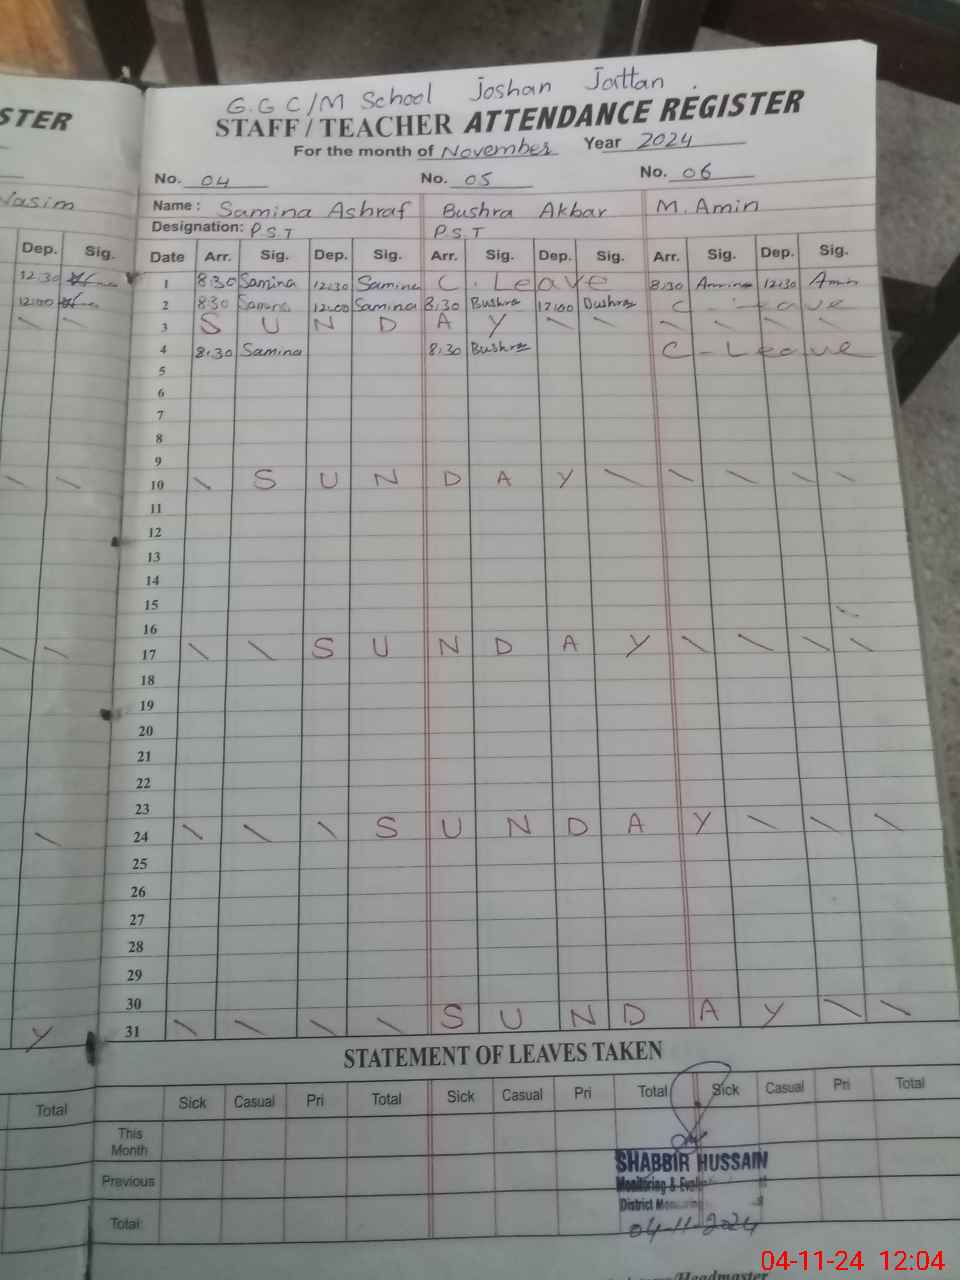 G.G C/M School Joshan Jattan
STER
STAFF / TEACHER ATTENDANCE REGISTER
For the month of November Year 2024
No. 04 No. 05 No. 06
Wasim
Name: Samina Ashraf Bushra Akbar M. Amin
Designation: P.S.T P.S.T
Dep. Sig. Date Arr. Sig. Dep. Sig. Arr. Sig. Dep. Sig. Arr. Sig. Dep. Sig.
12:30 1 8:30 Samina 12:30 Samina C. Leave 8:30 Amin 12:30 Amin
12:00 2 8:30 Samina 12:00 Samina 8:30 Bushra 12:00 Bushra C - Leave
3 S U N D A Y
4 8:30 Samina 8:30 Bushra C - Leave
5
6
7
8
9
10 S U N D A Y
11
12
13
14
15
16
17 S U N D A Y
18
19
20
21
22
23
24 S U N D A Y
25
26
27
28
29
30
Y 31 S U N D A Y
STATEMENT OF LEAVES TAKEN
Total Sick Casual Pri Total Sick Casual Pri Total Sick Casual Pri Total
This Month
Previous
Total:
SHABBIR HUSSAIN
Monitoring &
District
04-11-2024
04-11-24 12:04
/Headmaster